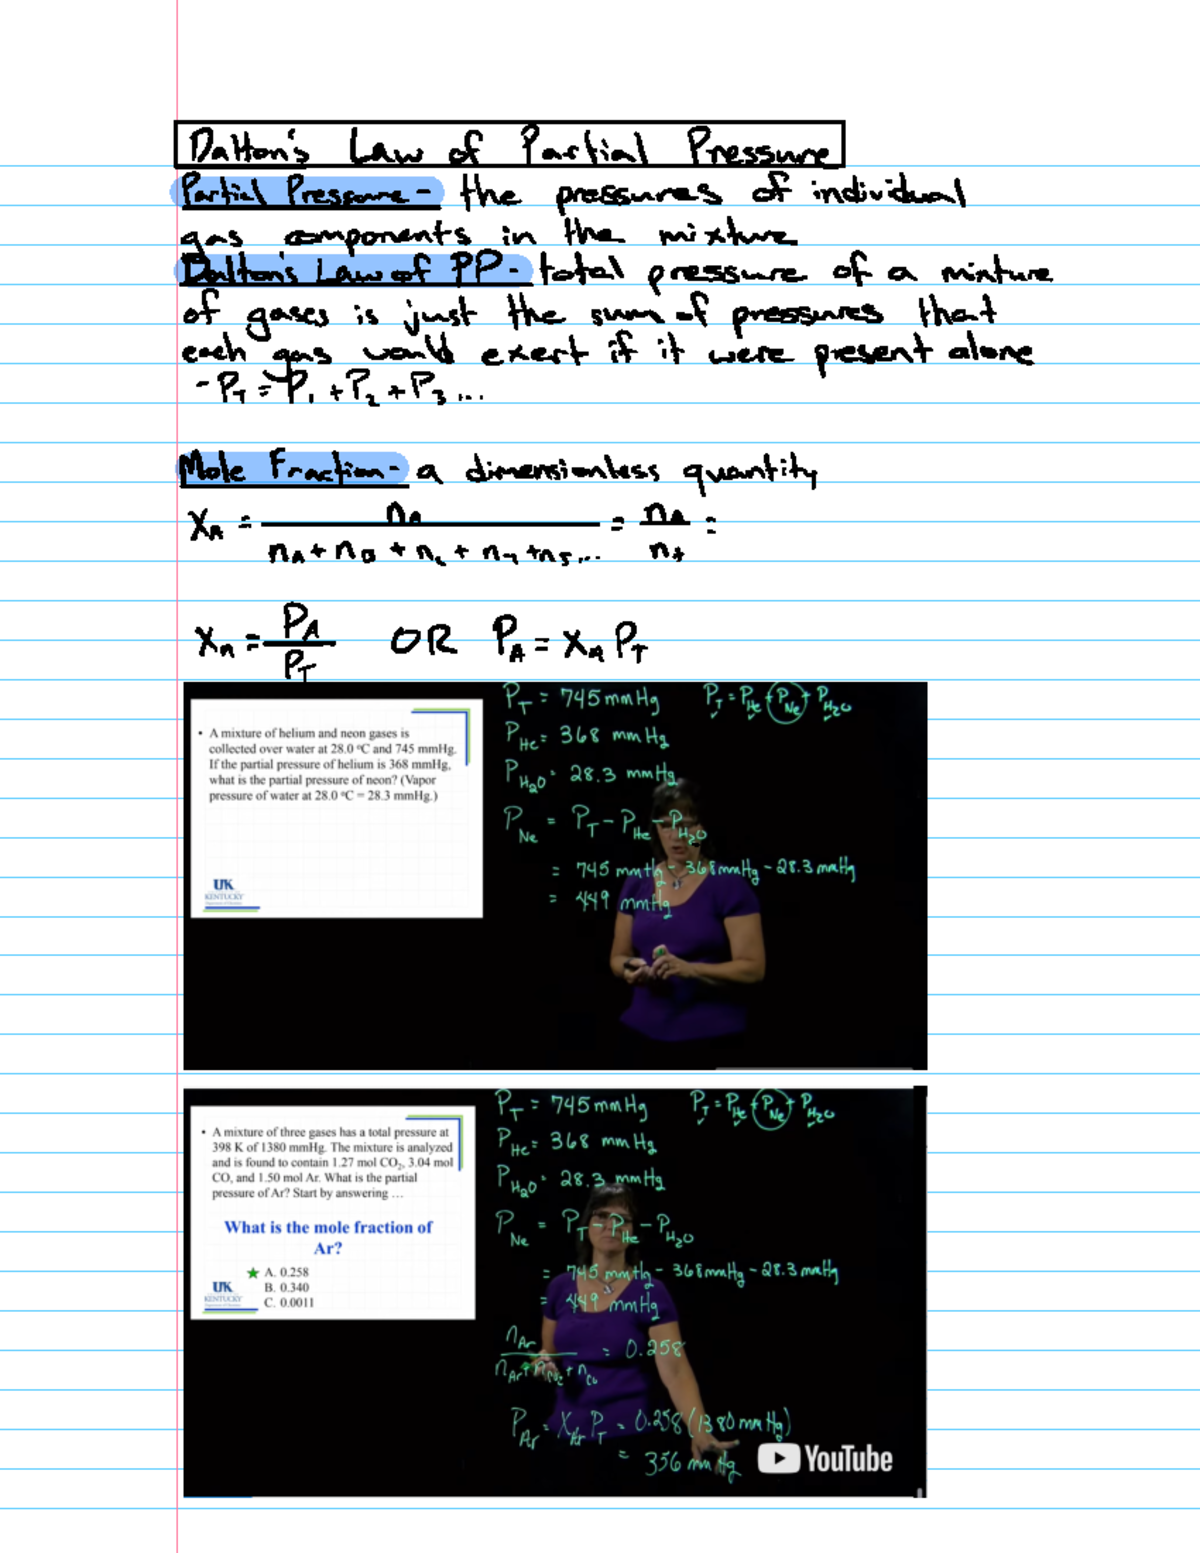 Dalton's Law of Partial Pressure
Partial Pressure- the pressures of individual
gas components in the mixture
Dalton's Law of PP- total pressure of a mixture
of gases is just the sum of pressures that
each gas would exert if it were present alone
- P_T = P_1 + P_2 + P_3 ...
Mole Fraction- a dimensionless quantity
X_A = n_A / (n_A + n_B + n_C + n_4 + n_5...) = n_A / n_t =
X_A = P_A / P_T OR P_A = X_A P_T
• A mixture of helium and neon gases is
collected over water at 28.0 °C and 745 mmHg.
If the partial pressure of helium is 368 mmHg,
what is the partial pressure of neon? (Vapor
pressure of water at 28.0 °C = 28.3 mmHg.)
UK
KENTUCKY
P_T = 745 mmHg P_T = P_He + P_Ne + P_H2O
P_He = 368 mmHg
P_H2O = 28.3 mmHg
P_Ne = P_T - P_He - P_H2O
= 745 mmHg - 368 mmHg - 28.3 mmHg
= 449 mmHg
• A mixture of three gases has a total pressure at
398 K of 1380 mmHg. The mixture is analyzed
and is found to contain 1.27 mol CO₂, 3.04 mol
CO, and 1.50 mol Ar. What is the partial
pressure of Ar? Start by answering …
What is the mole fraction of
Ar?
A. 0.258
B. 0.340
C. 0.0011
UK
KENTUCKY
P_T = 745 mmHg P_T = P_He + P_Ne + P_H2O
P_He = 368 mmHg
P_H2O = 28.3 mmHg
P_Ne = P_T - P_He - P_H2O
= 745 mmHg - 368 mmHg - 28.3 mmHg
= 449 mmHg
n_Ar / (n_Ar + n_CO2 + n_CO) = 0.258
P_Ar = X_Ar P_T = 0.258 (1380 mmHg)
= 356 mmHg
YouTube